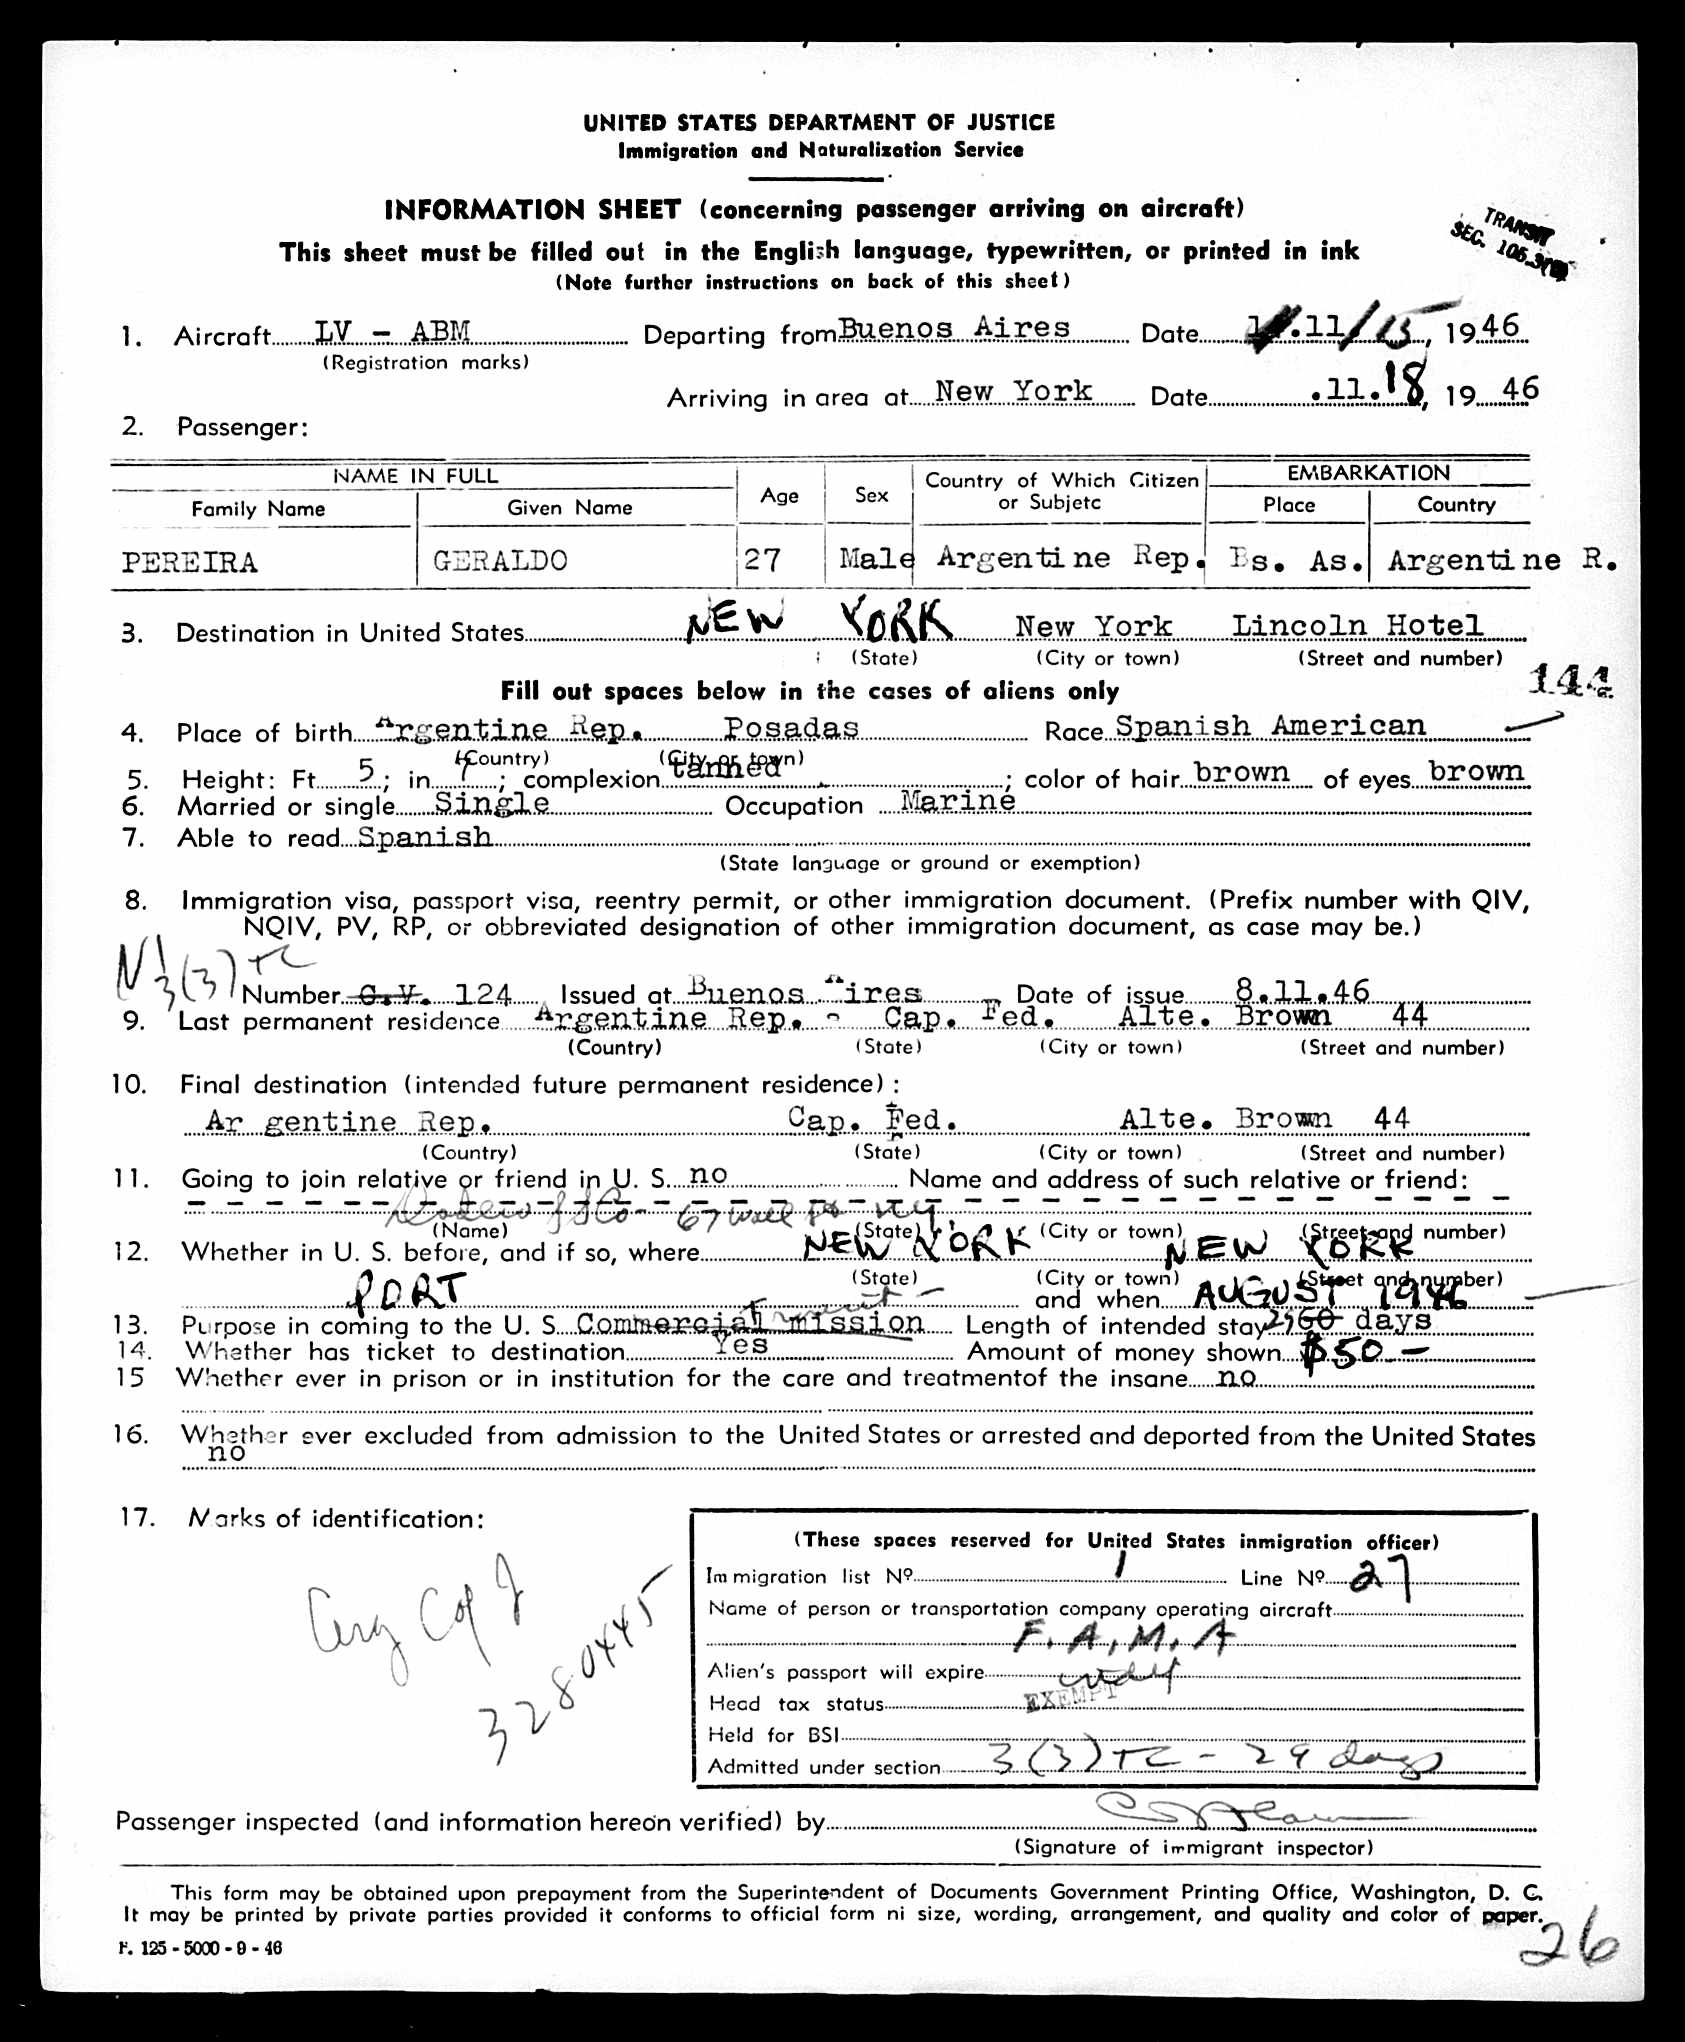 UNITED STATES DEPARTMENT OF JUSTICE
Immigration and Naturalization Service
INFORMATION SHEET (concerning passenger arriving on aircraft)
TRANSIT
SEC. 105.3
This sheet must be filled out in the English language, typewritten, or printed in ink
(Note further instructions on back of this sheet)
1. Aircraft LV - ABM Departing from Buenos Aires Date .11/15, 19 46
(Registration marks)
Arriving in area at New York Date .11.18, 19 46
2. Passenger:
NAME IN FULL Age Sex Country of Which Citizen or Subjetc EMBARKATION
Family Name Given Name Place Country
PEREIRA GERALDO 27 Male Argentine Rep. Bs. As. Argentine R.
3. Destination in United States NEW YORK New York Lincoln Hotel
(State) (City or town) (Street and number)
144
Fill out spaces below in the cases of aliens only
4. Place of birth Argentine Rep. Posadas Race Spanish American
(Country) (City or town)
5. Height: Ft. 5; in. 7; complexion tanned; color of hair brown of eyes brown
6. Married or single Single Occupation Marine
7. Able to read Spanish
(State language or ground or exemption)
8. Immigration visa, passport visa, reentry permit, or other immigration document. (Prefix number with QIV,
NQIV, PV, RP, or obbreviated designation of other immigration document, as case may be.)
3(3) TC
Number G.V. 124 Issued at Buenos Aires Date of issue 8.11.46
9. Last permanent residence Argentine Rep. - Cap. Fed. Alte. Brown 44
(Country) (State) (City or town) (Street and number)
10. Final destination (intended future permanent residence):
Ar gentine Rep. Cap. Fed. Alte. Brown 44
(Country) (State) (City or town) (Street and number)
11. Going to join relative or friend in U. S. no Name and address of such relative or friend:
Dodero & Co - 67 Wall St NY
(Name) (State) (City or town) (Street and number)
12. Whether in U. S. before, and if so, where NEW YORK NEW YORK
(State) (City or town) (Street and number)
PORT and when AUGUST 1946
Transit -
13. Purpose in coming to the U. S. Commercial mission Length of intended stay 29 60 days
14. Whether has ticket to destination Yes Amount of money shown $50.-
15 Whether ever in prison or in institution for the care and treatmentof the insane no
16. Whether ever excluded from admission to the United States or arrested and deported from the United States
no
17. Marks of identification:
Arg
3280445
(These spaces reserved for United States inmigration officer)
Immigration list Nº 1 Line Nº 27
Name of person or transportation company operating aircraft
F. A. M. A
Alien's passport will expire indef
Head tax status EXEMPT
Held for BSI
Admitted under section 3(3) TC - 29 days
Passenger inspected (and information hereon verified) by
(Signature of immigrant inspector)
This form may be obtained upon prepayment from the Superintendent of Documents Government Printing Office, Washington, D. C.
It may be printed by private parties provided it conforms to official form ni size, wording, arrangement, and quality and color of paper.
F. 125 - 5000 - 9 - 46
26